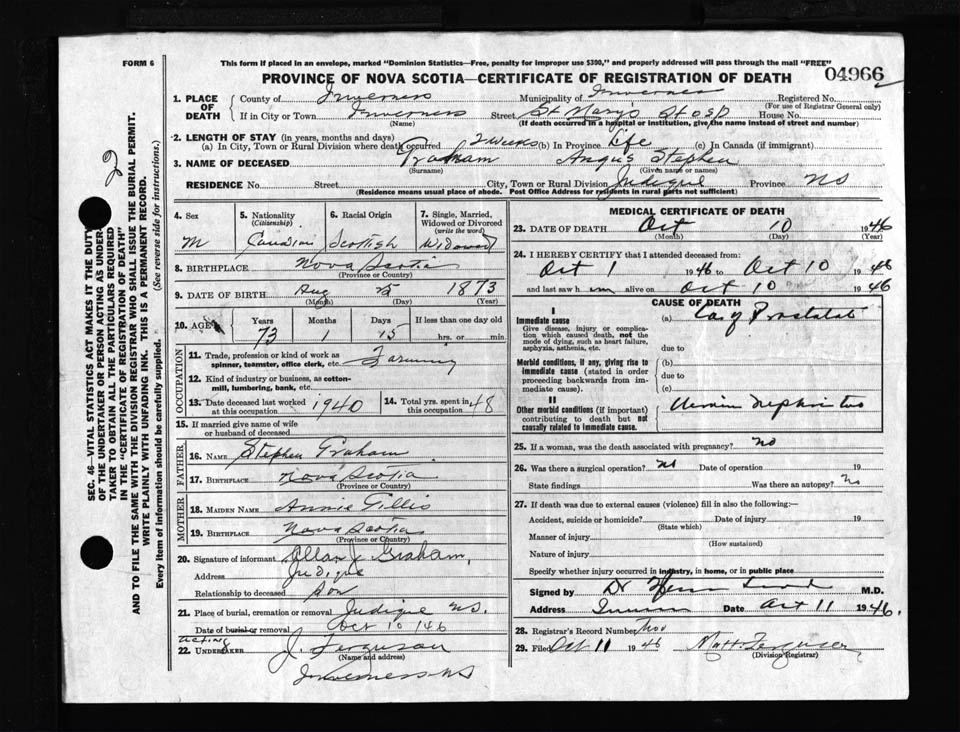 FORM 6
This form if placed in an envelope, marked "Dominion Statistics—Free, penalty for improper use $300," and properly addressed will pass through the mail "FREE"
PROVINCE OF NOVA SCOTIA—CERTIFICATE OF REGISTRATION OF DEATH
04966
1. PLACE OF DEATH
County of Inverness Municipality of Inverness Registered No.
(For use of Registrar General only)
If in City or Town Inverness Street St Mary's Hosp House No.
(Name) (If death occurred in a hospital or institution, give the name instead of street and number)
2. LENGTH OF STAY (in years, months and days)
(a) In City, Town or Rural Division where death occurred 2 weeks (b) In Province Life (c) In Canada (if immigrant)
3. NAME OF DECEASED Graham Angus Stephen
(Surname) (Given name or names)
RESIDENCE No. Street City, Town or Rural Division Judique Province NS
(Residence means usual place of abode. Post Office Address for residents in rural parts not sufficient)
4. Sex M
5. Nationality (Citizenship) Canadian
6. Racial Origin Scottish
7. Single, Married, Widowed or Divorced (write the word) Widowed
8. BIRTHPLACE Nova Scotia
(Province or Country)
9. DATE OF BIRTH Aug 25 1873
(Month) (Day) (Year)
10. AGE Years 73 Months 1 Days 15 If less than one day old hrs. or min.
OCCUPATION
11. Trade, profession or kind of work as spinner, teamster, office clerk, etc. Farming
12. Kind of industry or business, as cotton-mill, lumbering, bank, etc.
13. Date deceased last worked at this occupation 1940
14. Total yrs. spent in this occupation 48
15. If married give name of wife or husband of deceased
FATHER
16. Name Stephen Graham
17. Birthplace Nova Scotia
(Province or Country)
MOTHER
18. Maiden Name Annie Gillis
19. Birthplace Nova Scotia
(Province or Country)
20. Signature of informant Allan J. Graham,
Address Judique
Relationship to deceased son
21. Place of burial, cremation or removal Judique NS.
Date of burial or removal Oct 10 146
acting
22. Undertaker J. Ferguson
(Name and address)
Inverness NS
MEDICAL CERTIFICATE OF DEATH
23. DATE OF DEATH Oct 10 1946
(Month) (Day) (Year)
24. I HEREBY CERTIFY that I attended deceased from:
Oct 1 1946 to Oct 10 1946
and last saw h im alive on Oct 10 1946
CAUSE OF DEATH
I
Immediate cause (a) Ca of
Give disease, injury or complication which caused death, not the mode of dying, such as heart failure, asphyxia, asthenia, etc.
due to
Morbid conditions, if any, giving rise to immediate cause (stated in order proceeding backwards from immediate cause).
(b)
due to
(c)
II
Other morbid conditions (if important) contributing to death but not causally related to immediate cause.
25. If a woman, was the death associated with pregnancy? no
26. Was there a surgical operation? no Date of operation 19
State findings Was there an autopsy? No
27. If death was due to external causes (violence) fill in also the following:—
Accident, suicide or homicide? Date of injury 19
(State which)
Manner of injury
(How sustained)
Nature of injury
Specify whether injury occurred in industry, in home, or in public place
Signed by Dr M.D.
Address Date Oct 11 1946.
28. Registrar's Record Number
29. Filed Oct 11 1946 Matt. Ferguson
(Division Registrar)
SEC. 46—VITAL STATISTICS ACT MAKES IT THE DUTY
OF THE UNDERTAKER OR PERSON ACTING AS UNDER-
TAKER TO OBTAIN ALL THE PARTICULARS REQUIRED
IN THE "CERTIFICATE OF REGISTRATION OF DEATH"
AND TO FILE THE SAME WITH THE DIVISION REGISTRAR WHO SHALL ISSUE THE BURIAL PERMIT.
WRITE PLAINLY WITH UNFADING INK. THIS IS A PERMANENT RECORD.
Every item of information should be carefully supplied. (See reverse side for instructions.)
2